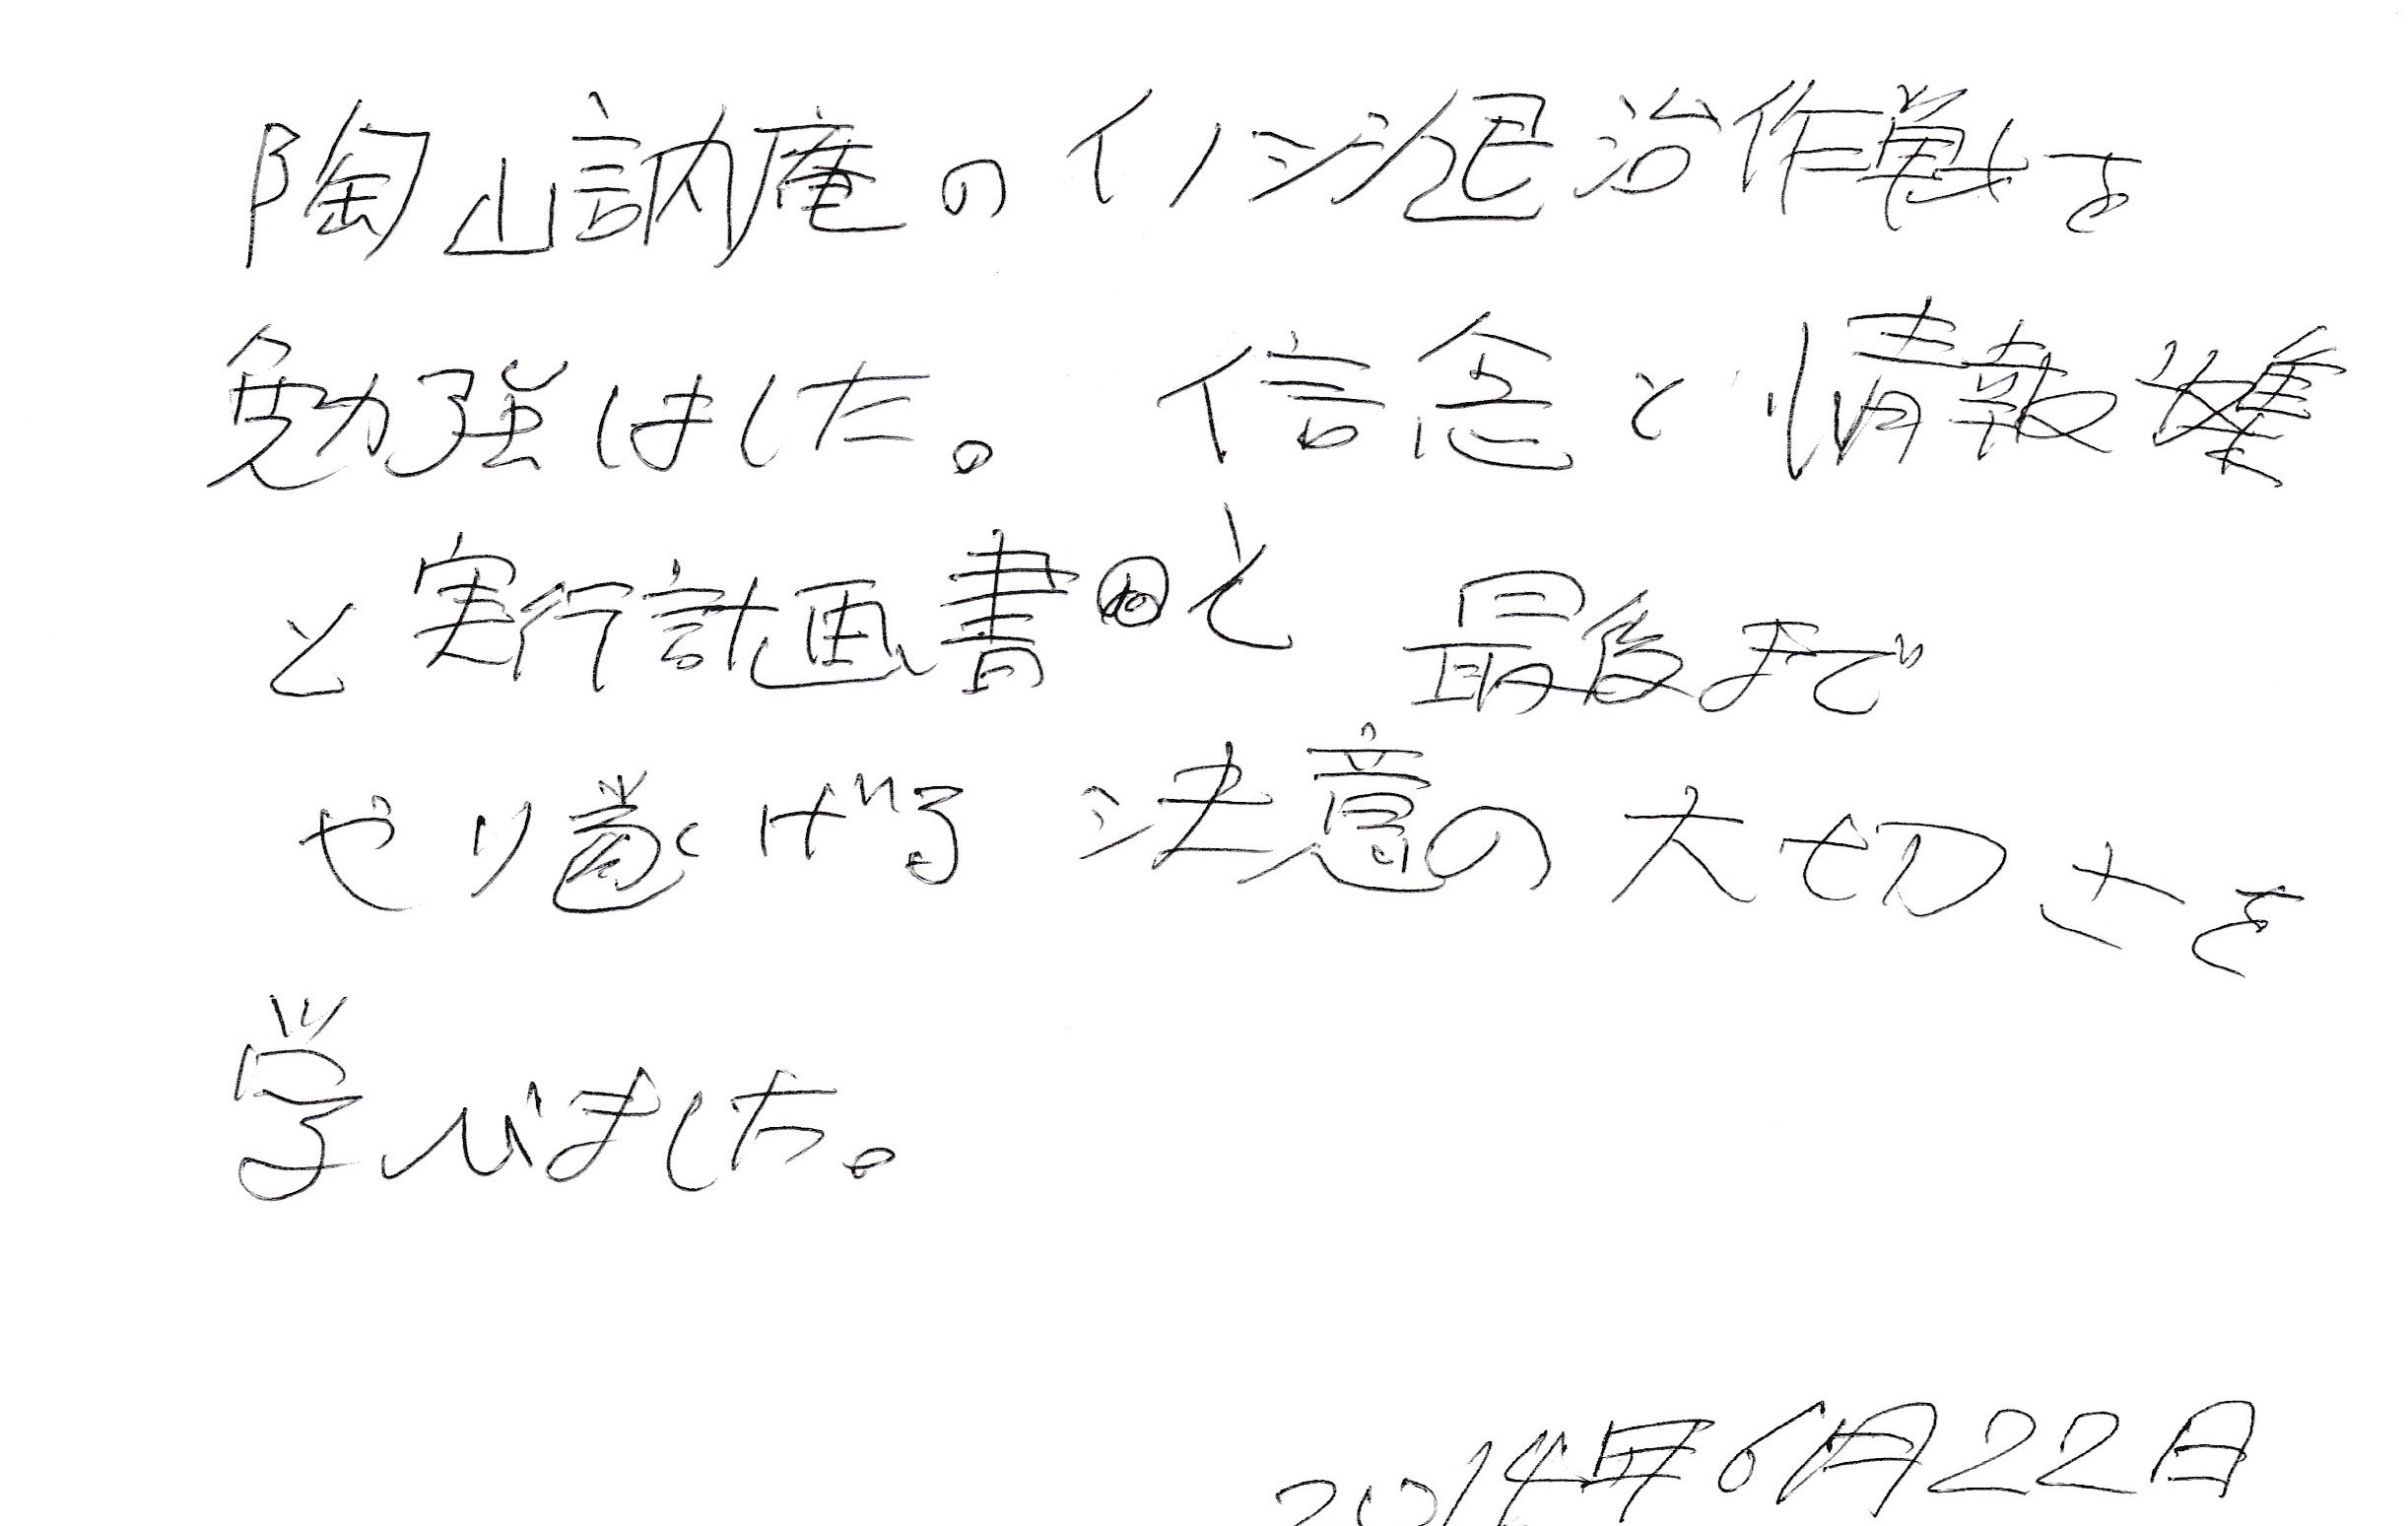 陶山訥庵のイノシシ退治作戦を
勉強しました。信念と情報収集
と実行計画書と最後まで
やり遂げる決意の大切さを
学びました。
2014年6月22日